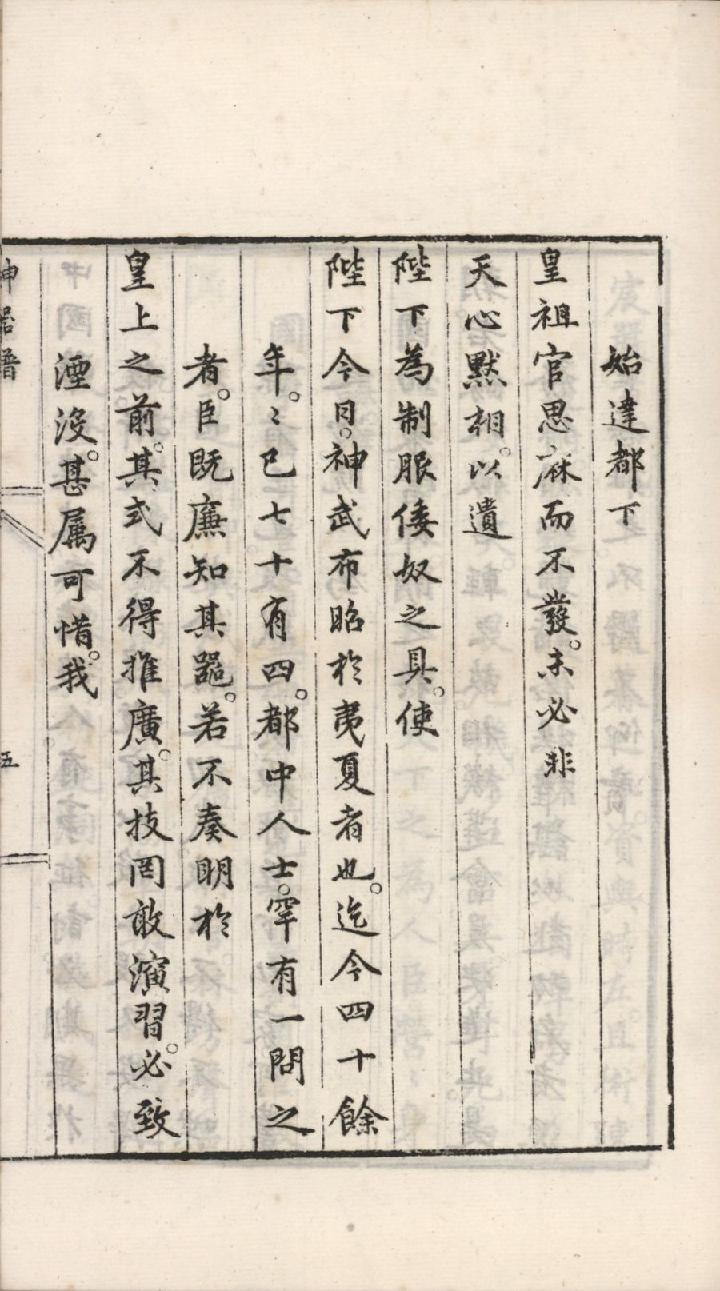 始達都下
皇祖官思麻而不發。未必非
天心默相。以遺
陛下為制服倭奴之具。使
陛下今日。神武布昭於夷夏者也。迄今四十餘
年。〻已七十有四。都中人士。罕有一問之
者。臣既廉知其噐。若不奏明於
皇上之前。其式不得推廣。其技罔敢演習。必致
湮沒。甚属可惜。我
神器譜
五